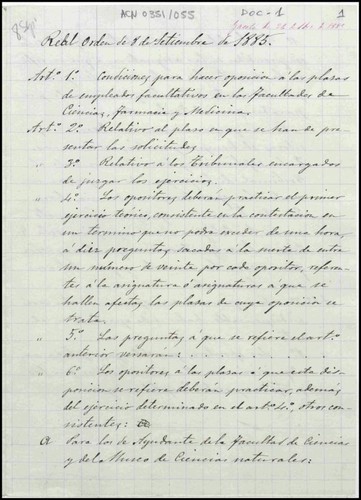 ACN 0351/055
DOC-1
1
8 Sep.
Real Orden de 8 de Setiembre de 1885.
Art.º 1.º Condiciones para hacer oposición á las plazas
de empleados facultativos en las Facultades de
Ciencias, Farmacia y Medicina.
Art.º 2.º Relativo al plazo en que se han de pre-
sentar las solicitudes.
" 3.º Relativo á los Tribunales encargados
de juzgar los ejercicios.
" 4.º Los opositores deberán practicar el primer
ejercicio teórico, consistente en la contestación en
un término que no podrá exceder de una hora,
á diez preguntas sacadas á la suerte de entre
un número de veinte por cada opositor, referen-
tes á la asignatura ó asignaturas á que se
hallen afectas las plazas de cuya oposición se
trata.
" 5.º Las preguntas á que se refiere el art.º
anterior versarán: . . . . . . . .
" 6.º Los opositores á las plazas á que esta dis-
posicion se refiere deberán practicar, además
del ejercicio determinado en el art.º 4.º, otros con-
sistentes:
a Para los de Ayudante de la Facultad de Ciencias
y del Museo de Ciencias naturales: